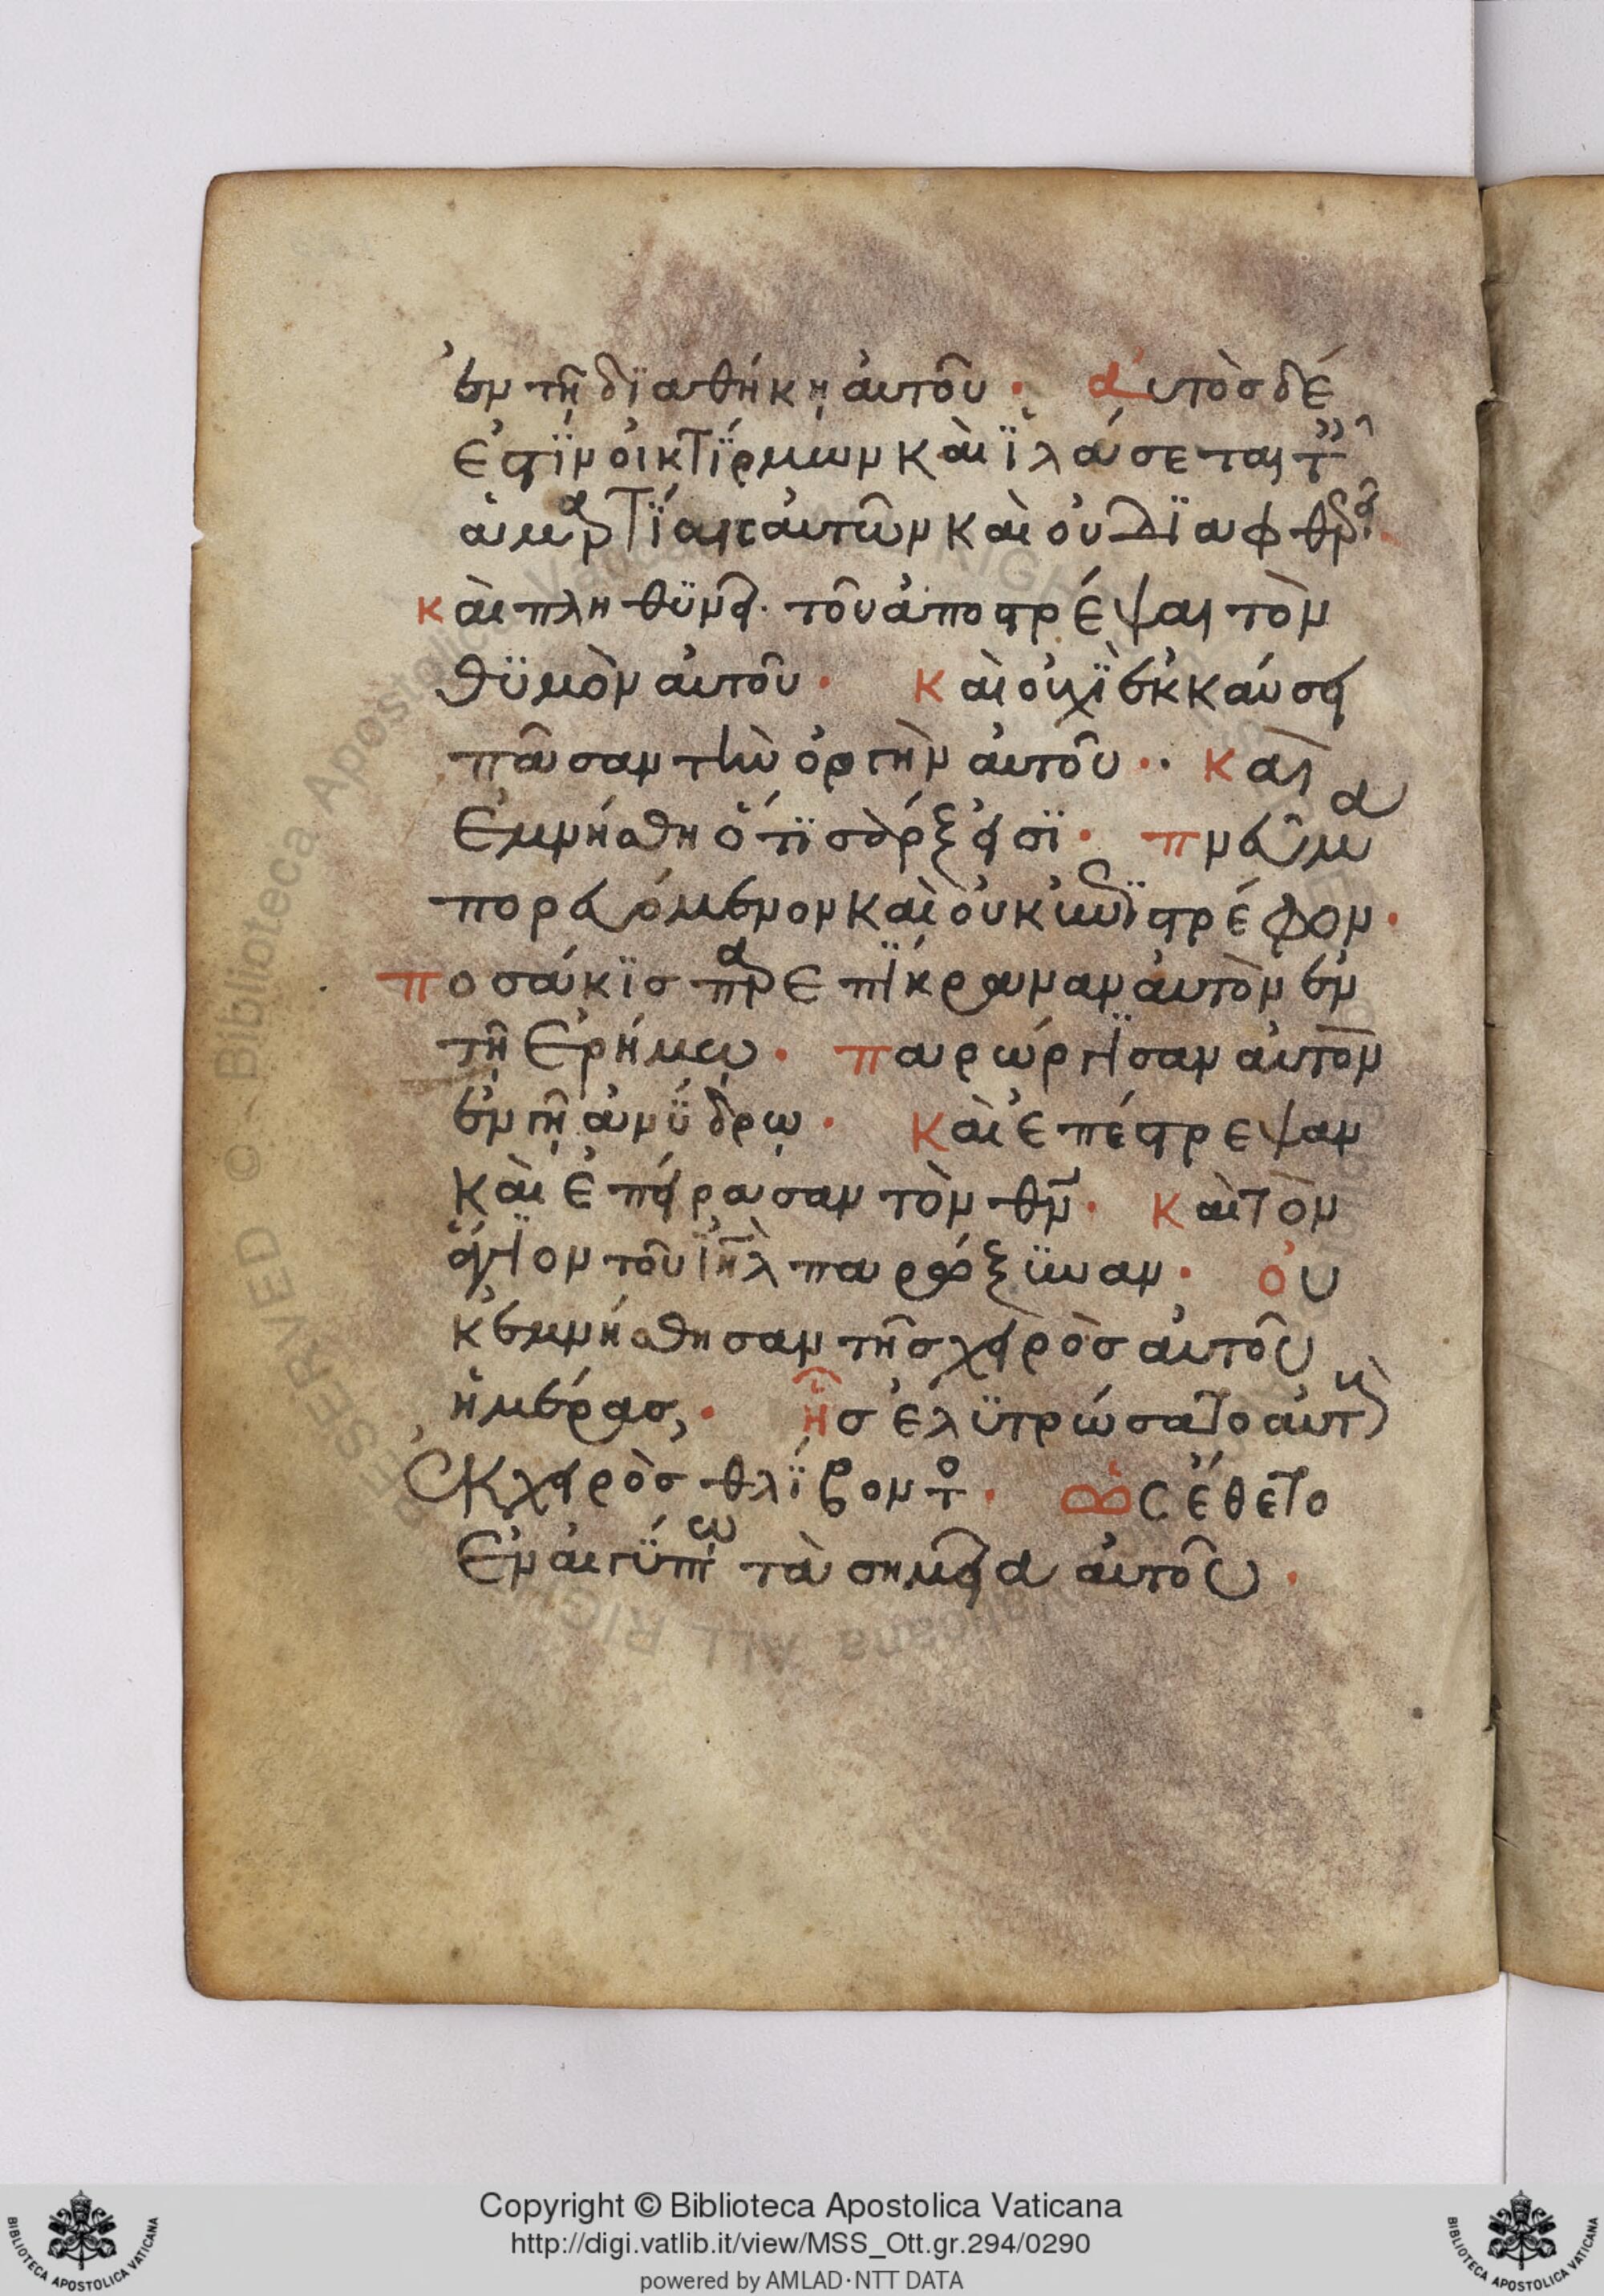 ἐν τῇ δϊαθήκῃ ἀυτοῦ · ἀυτὸσ δέ
ἐστϊν οἰκτϊρμων κὰι ϊλάσεται τ
ἁμαρτΐαισ ἀυτῶν κὰι οὐ δϊαφθρεῖ ·
κὰι πληθϋνεῖ · τοῦ ἀποστρέψαι τὸν
θϋμὸν ἀυτοῦ · κὰι οὐχϊ ἐκκαύσει
πᾶσαν τὴν ὀργὴν ἀυτοῦ · · κὰι
ἐμνήσθη ὅτϊ σάρξ εἰσϊ · πνεῦμα
πορευόμενον κὰι οὐκ ἐπϊστρέφον ·
ποσάκϊσ παρεπΐκραναν ἀυτὸν ἐν
τῇ ἐρήμῳ · παρώργϊσαν ἀυτὸν
ἐν γῇ ἀνΰδρῳ · κὰι ἐπέστρεψαν
κὰι ἐπείρασαν τὸν θν · κὰι τὸν
ἅγϊον τοῦ ϊηλ παρόξϋναν · οὐ
κ ἐμνήσθησαν τῆσ χειρὸσ ἀυτοῦ
ἡμέρασ, · ἧσ ἐλϋτρώσατο ἀυτ
ἐκ χειρὸσ θλΐβοντο · ὡς ἔθετο
ἐν ἀιγΰπτω τὰ σημεῖα ἀυτοῦ ·
Copyright © Biblioteca Apostolica Vaticana
http://digi.vatlib.it/view/MSS_Ott.gr.294/0290
powered by AMLAD·NTT DATA
BIBLIOTECA APOSTOLICA VATICANA
BIBLIOTECA APOSTOLICA VATICANA